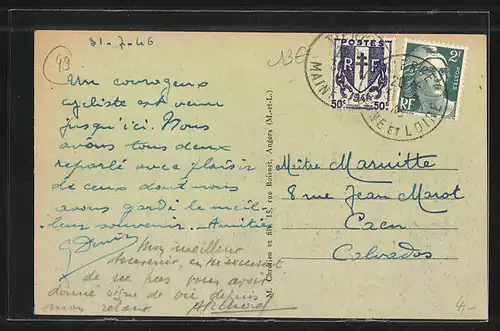 31-7-46
49
13€
POSTES
RF
1944
50c 50c
2F
POSTES
RF
MAINE ET LOIRE
Un courageux
cycliste est venu
jusqu'ici. Nous
avons tous deux
reparlé avec plaisir
de ceux dont nous
avons gardé le meil-
leur souvenir. Amitiés
Mon meilleur
souvenir, en m'excusant
de ne pas vous avoir
donné signe de vie depuis
mon retour
M. Chrétien et fils, 15, rue Boisnet, Angers (M.-et-L.)
Maître Maruitte
8 rue Jean Marot
Caen
Calvados
4.-